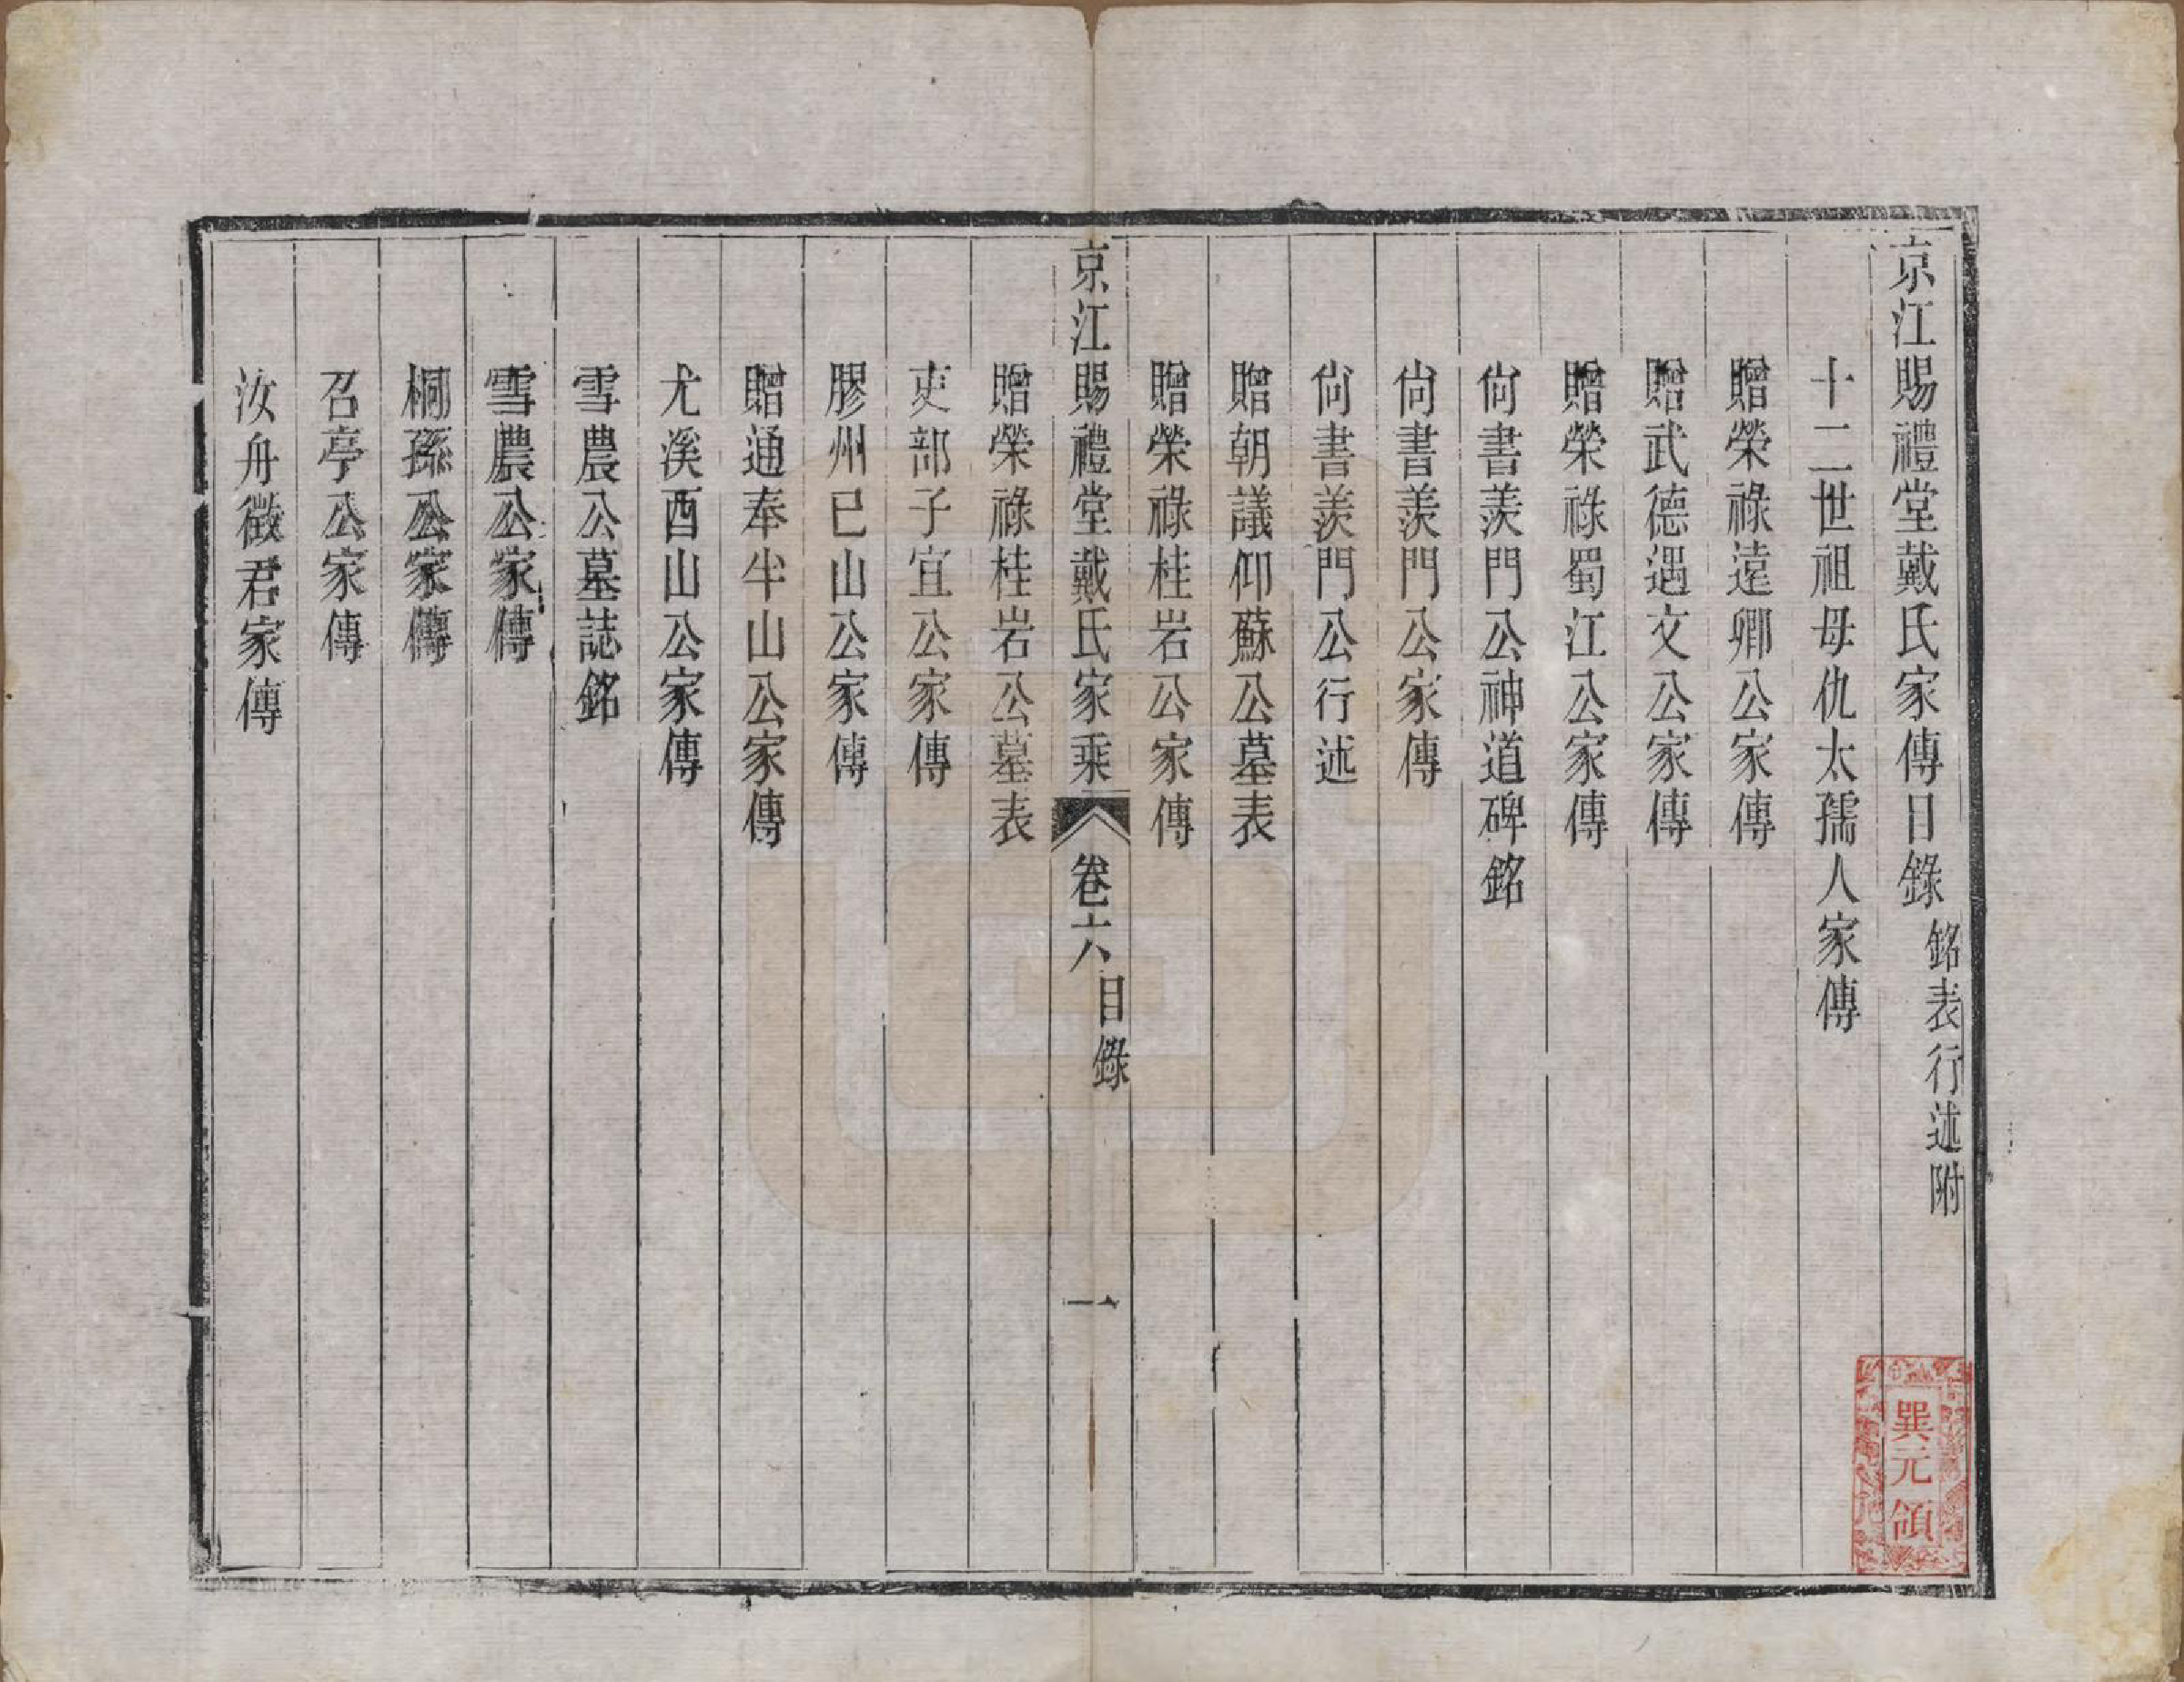 京江賜禮堂戴氏家傳目錄銘表行述附
十二世祖母仇太孺人家傳
贈榮祿遠卿公家傳
贈武德遇文公家傳
贈榮祿蜀江公家傳
尙書羨門公神道碑銘
尙書羨門公家傳
尙書羨門公行述
贈朝議仰蘇公墓表
贈榮祿桂岩公家傳
京江賜禮堂戴氏家乘
卷六
目錄
一
贈榮祿桂岩公墓表
吏部子宜公家傳
膠州巳山公家傳
贈通奉半山公家傳
尤溪酉山公家傳
雪農公墓誌銘
雪農公家傳
桐孫公家傳
召亭公家傳
汝舟徵君家傳
巽元領